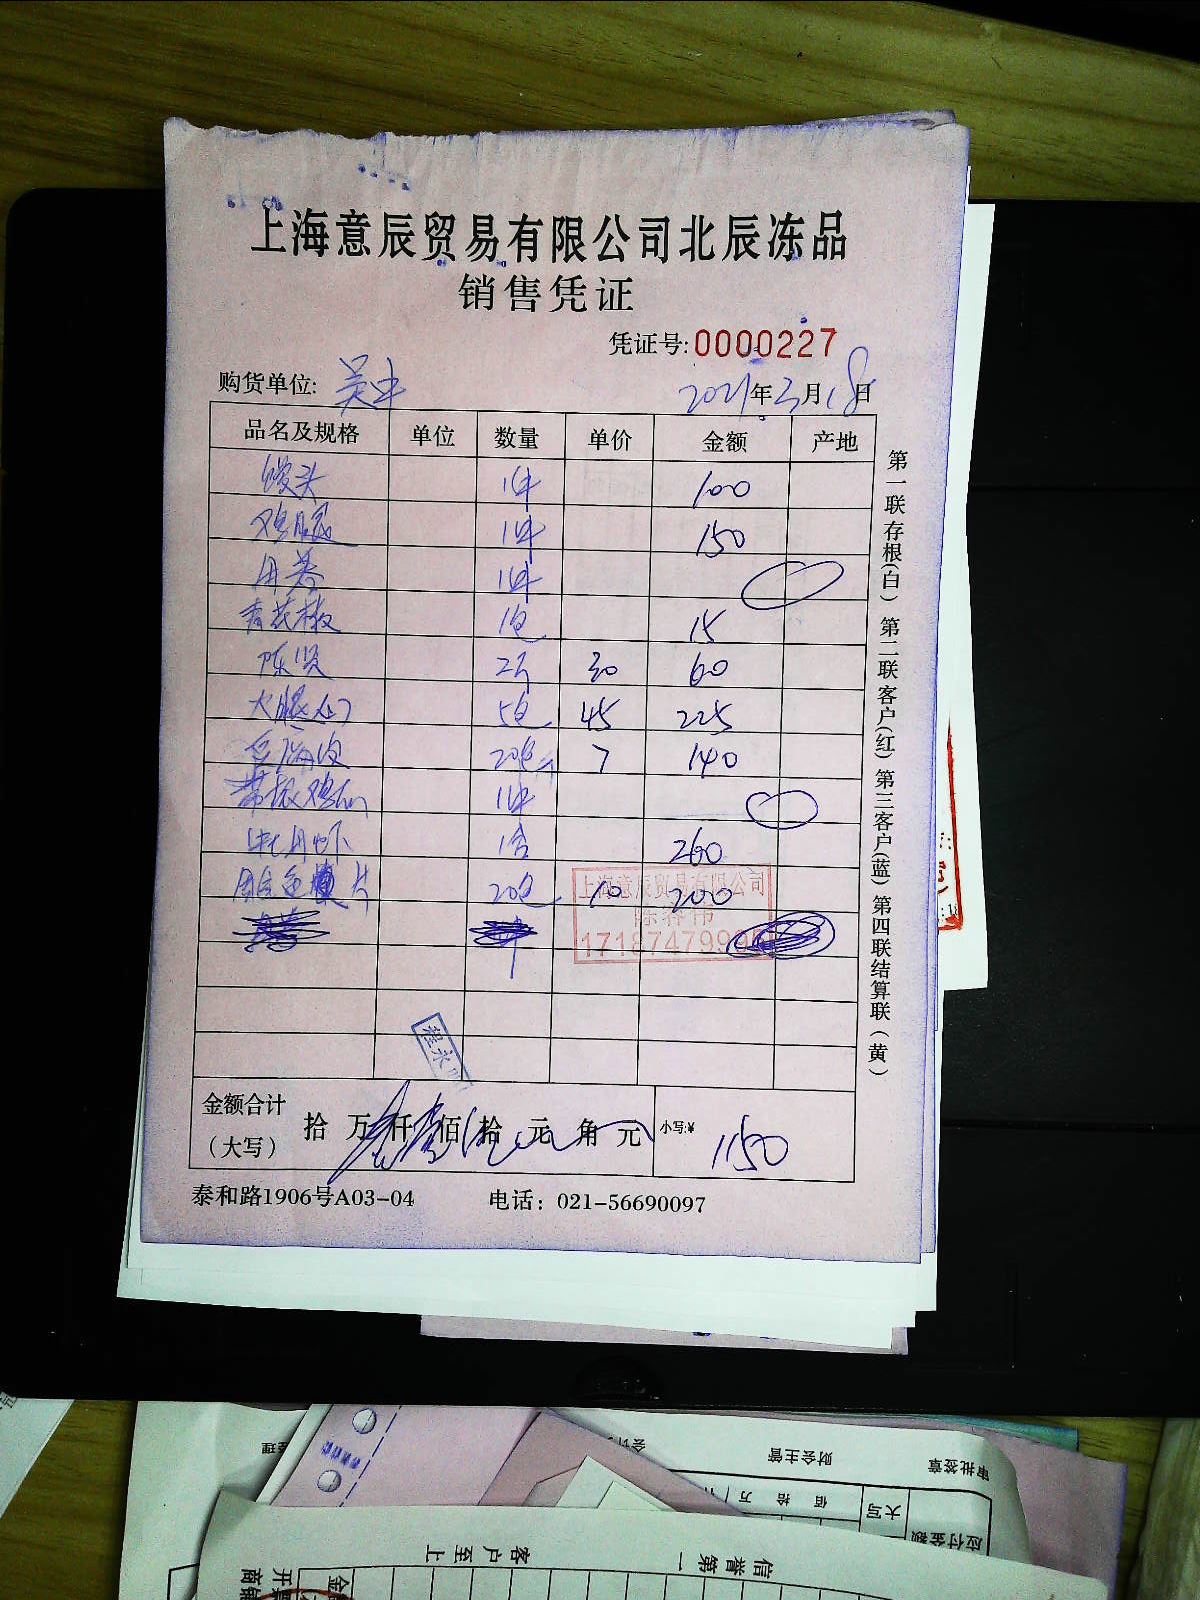 上海意辰贸易有限公司北辰冻品
销售凭证
凭证号:0000227
购货单位: 吴中 2021年3月18日
品名及规格 单位 数量 单价 金额 产地
馒头 1件 100
鸡腿 1件 150
1件
青花椒 1包 15
2斤 30 60
大腿 5包 45 225
20包 7 140
带根 1件
1盒 260
片 20包 10 200
上海意辰贸易有限公司
金额合计
(大写) 拾 万 仟 佰 拾 元 角 元 小写:¥ 1150
泰和路1906号A03-04 电话: 021-56690097
第一联存根(白) 第二联客户(红) 第三客户(蓝) 第四联结算联(黄)
审批签章 财会主管
应付金额
大写
信誉第一 客户至上